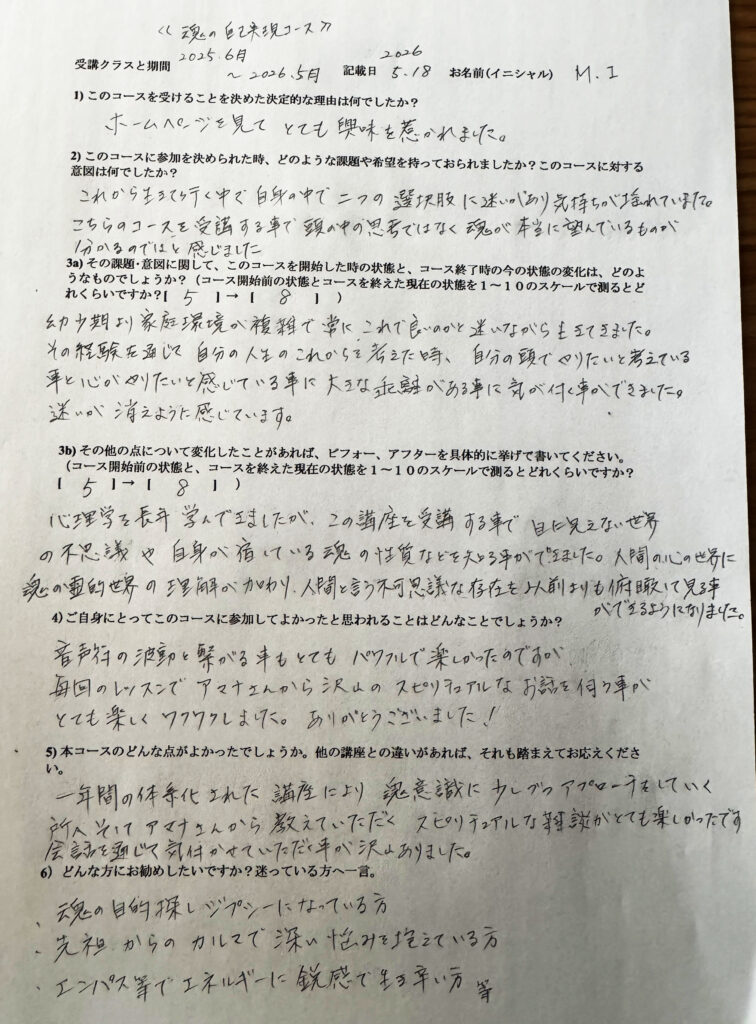 ≪ 魂の自己実現コース ≫
受講クラスと期間 2025.6月 ～2026.5月 記載日 2026 5.18 お名前(イニシャル) M.I
1) このコースを受けることを決めた決定的な理由は何でしたか？
ホームページを見て とても興味を惹かれました。
2) このコースに参加を決められた時、どのような課題や希望を持っておられましたか？このコースに対する
意図は何でしたか？
これから生きて行く中で自身の中で二つの選択肢に迷いがあり気持ちが揺れていました。
こちらのコースを受講する事で頭の中の思考ではなく魂が本当に望んでいるものが
分かるのではと感じました
3a) その課題・意図に関して、このコースを開始した時の状態と、コース終了時の今の状態の変化は、どのよ
うなものでしょうか？（コース開始前の状態とコースを終えた現在の状態を１～１０のスケールで測るとど
れくらいですか？[ 5 ] → [ 8 ] ）
幼少期より家庭環境が複雑で常にこれで良いのかと迷いながら生きてきました。
その経験を通じて 自分の人生のこれからを考えた時、自分の頭でやりたいと考えている
事と心がやりたいと感じている事に大きな距離がある事に気が付く事ができました。
迷いが消えように感じています。
3b) その他の点について変化したことがあれば、ビフォー、アフターを具体的に挙げて書いてください。
（コース開始前の状態と、コースを終えた現在の状態を１～１０のスケールで測るとどれくらいですか？
[ 5 ] → [ 8 ] ）
心理学を長年学んできましたが、この講座を受講する事で 目に見えない世界
の不思議や自身が宿している魂の性質などを知る事ができました。人間の心の世界に
魂の霊的世界の理解が加わり、人間と言う不可思議な存在を以前よりも俯瞰して見る事
ができるようになりました。
4) ご自身にとってこのコースに参加してよかったと思われることはどんなことでしょうか？
音声符の波動と繋がる事もとてもパワフルで楽しかったのですが
毎回のレッスンでアマナさんから沢山のスピリチュアルなお話を伺う事が
とても楽しくワクワクしました。ありがとうございました！
5) 本コースのどんな点がよかったでしょうか。他の講座との違いがあれば、それも踏まえてお応えくださ
い。
一年間の体系化された講座により 魂意識に少しづつアプローチをしていく
所へそしてアマナさんから教えていただく スピリチュアルな雑談がとても楽しかったです
会話を通じて気付かせていただく事が沢山ありました。
6) どんな方にお勧めしたいですか？迷っている方へ一言。
、魂の目的探しジプシーになっている方
・先祖からのカルマで深い悩みを抱えている方
、エンパス等でエネルギーに鋭感で生き辛い方 等